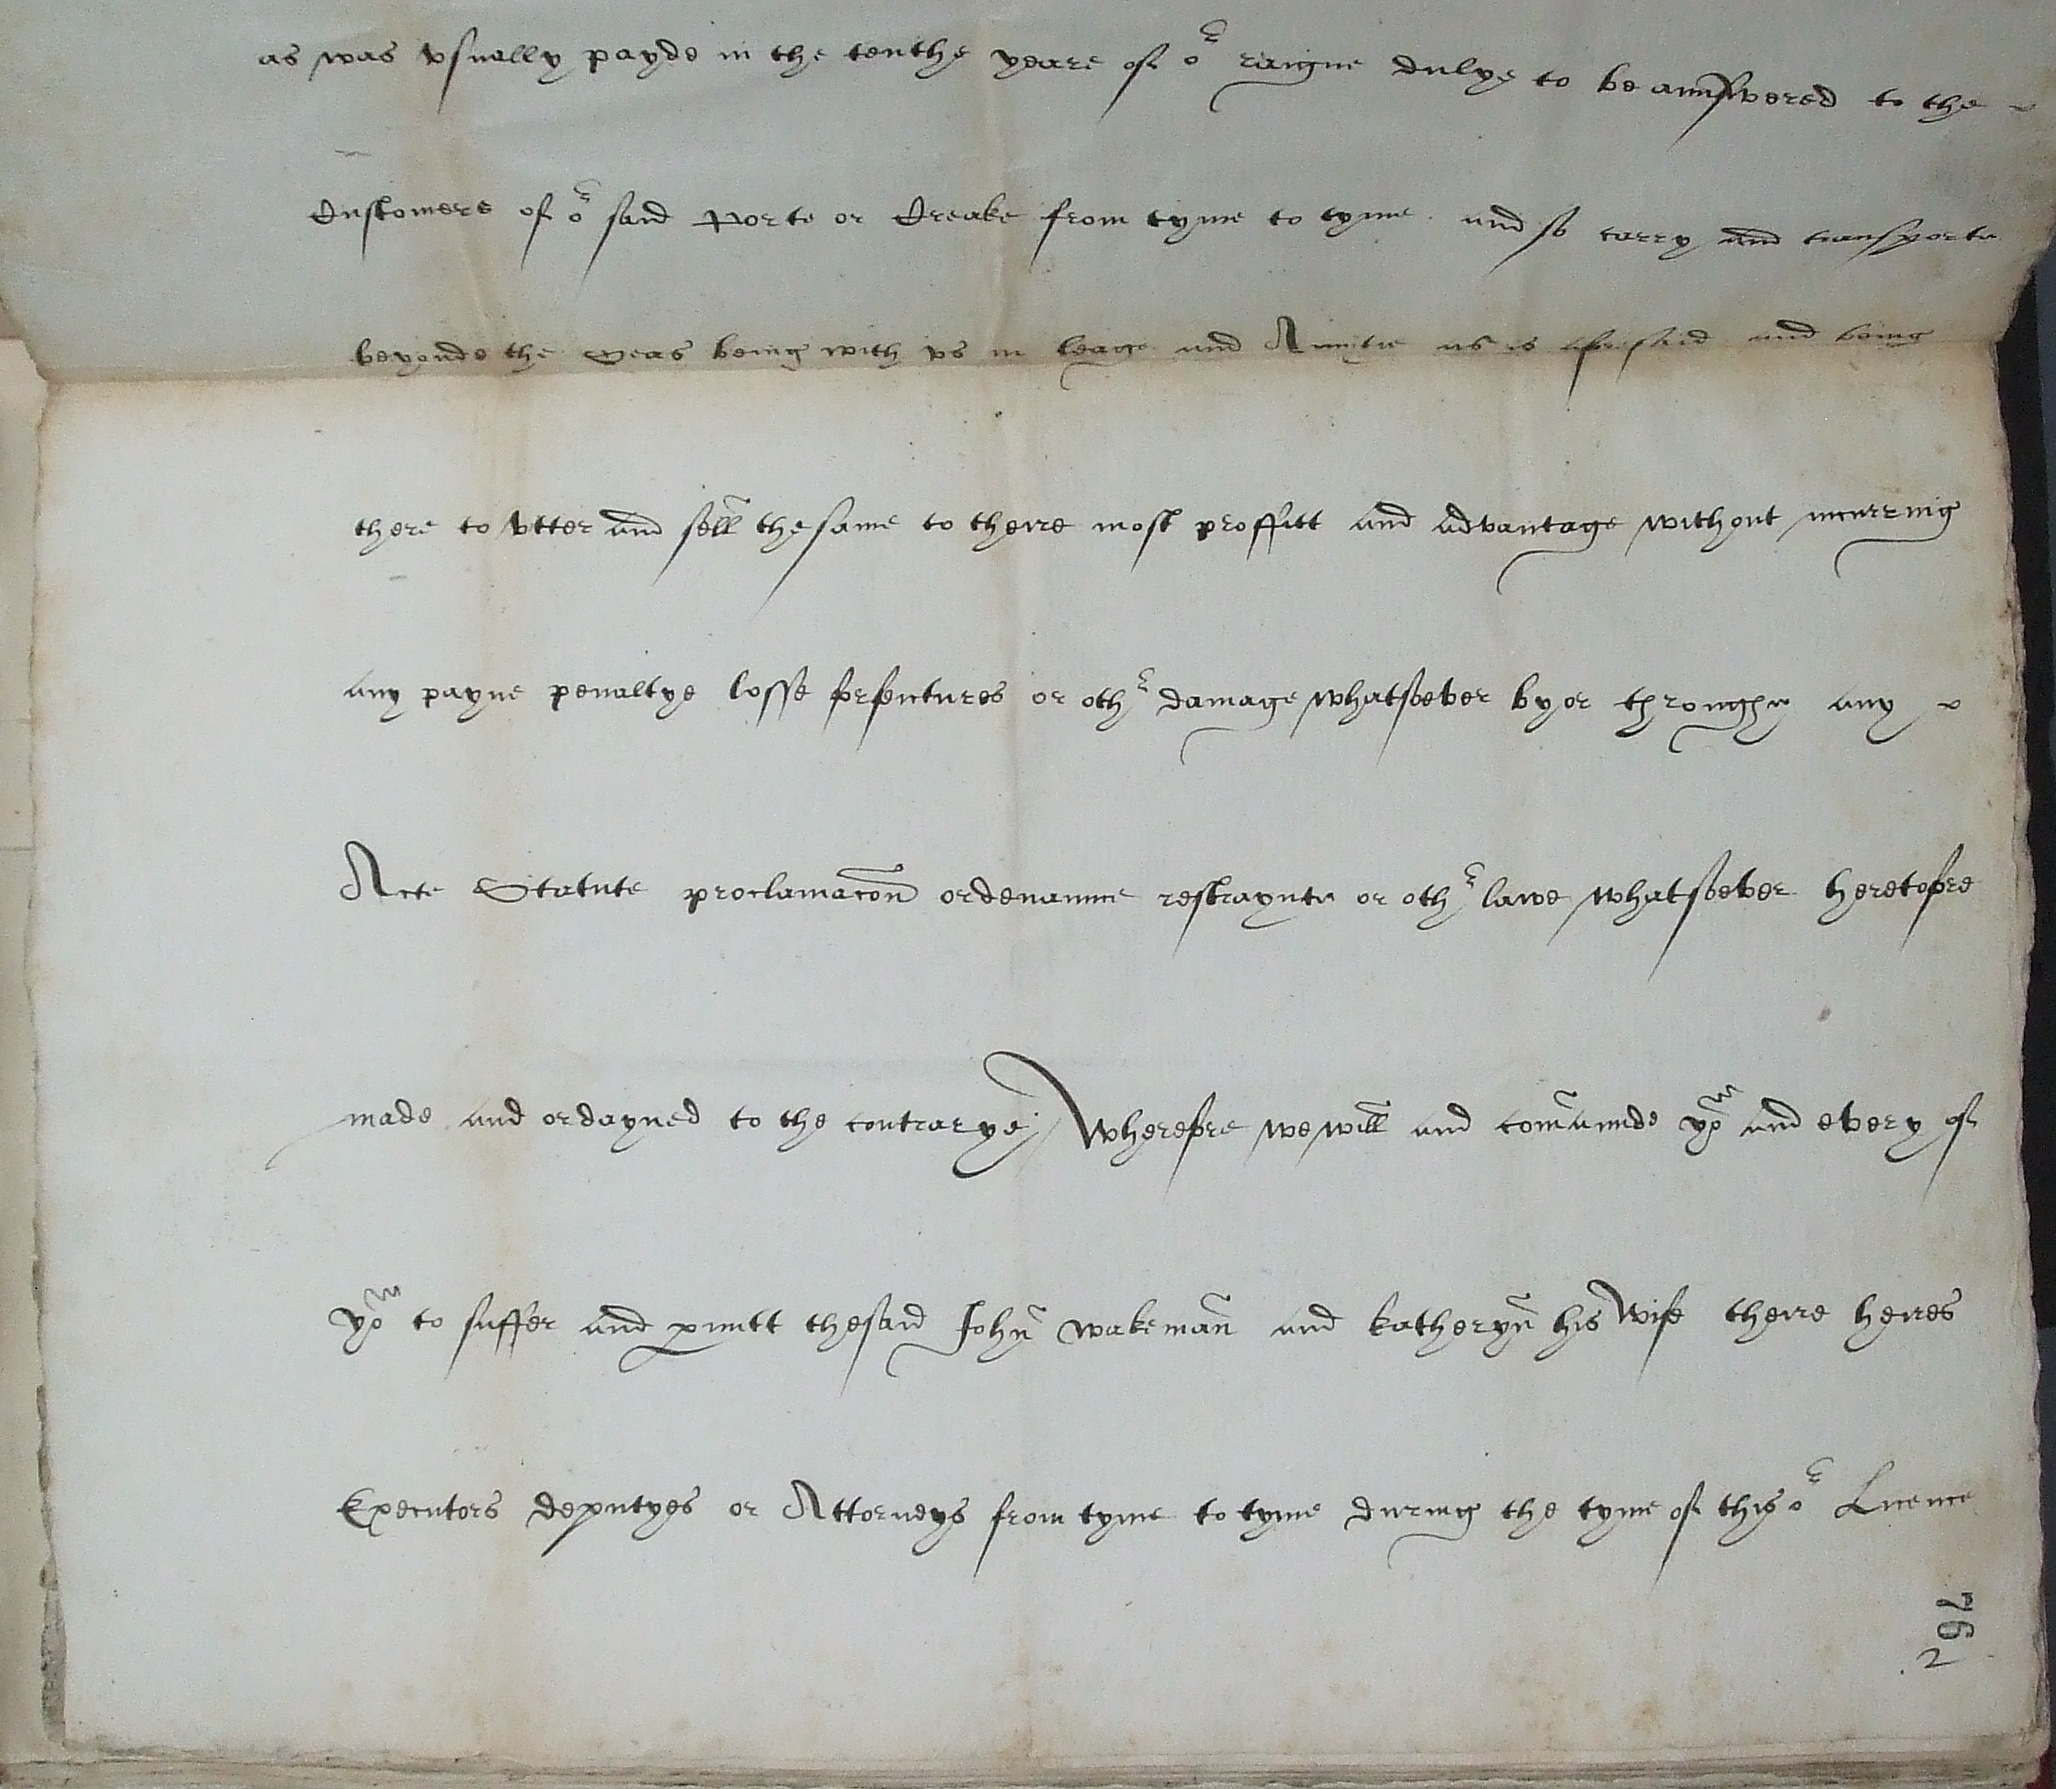 as was vsually payde in the tenthe yeare of oʳ raigne dulye to be aunswered to the
Customers of oʳ said Porte or Creake from tyme to tyme. and so carry and transporte
beyonde the Seas being with vs in leage and Amytie as is aforesaid and being
there to vtter and sell the same to theire most proffitt and advantage without incurring
any payne penaltye losse forfeitures or othʳ damage whatsoever by or throughe any
Acte Statute proclamacōn ordenaunce restraynte or othʳ lawe whatsoever heretofore
made and ordayned to the contrarye / Wherefore we will and com̄aunde yoᵘ and every of
yoᵘ to suffer and ꝑmitt thesaid John̄ wakeman̄ and Katheryn̄ his Wife theire heires
Executors deputyes or Attorneys from tyme to tyme during the tyme of this oʳ Licence
76
2